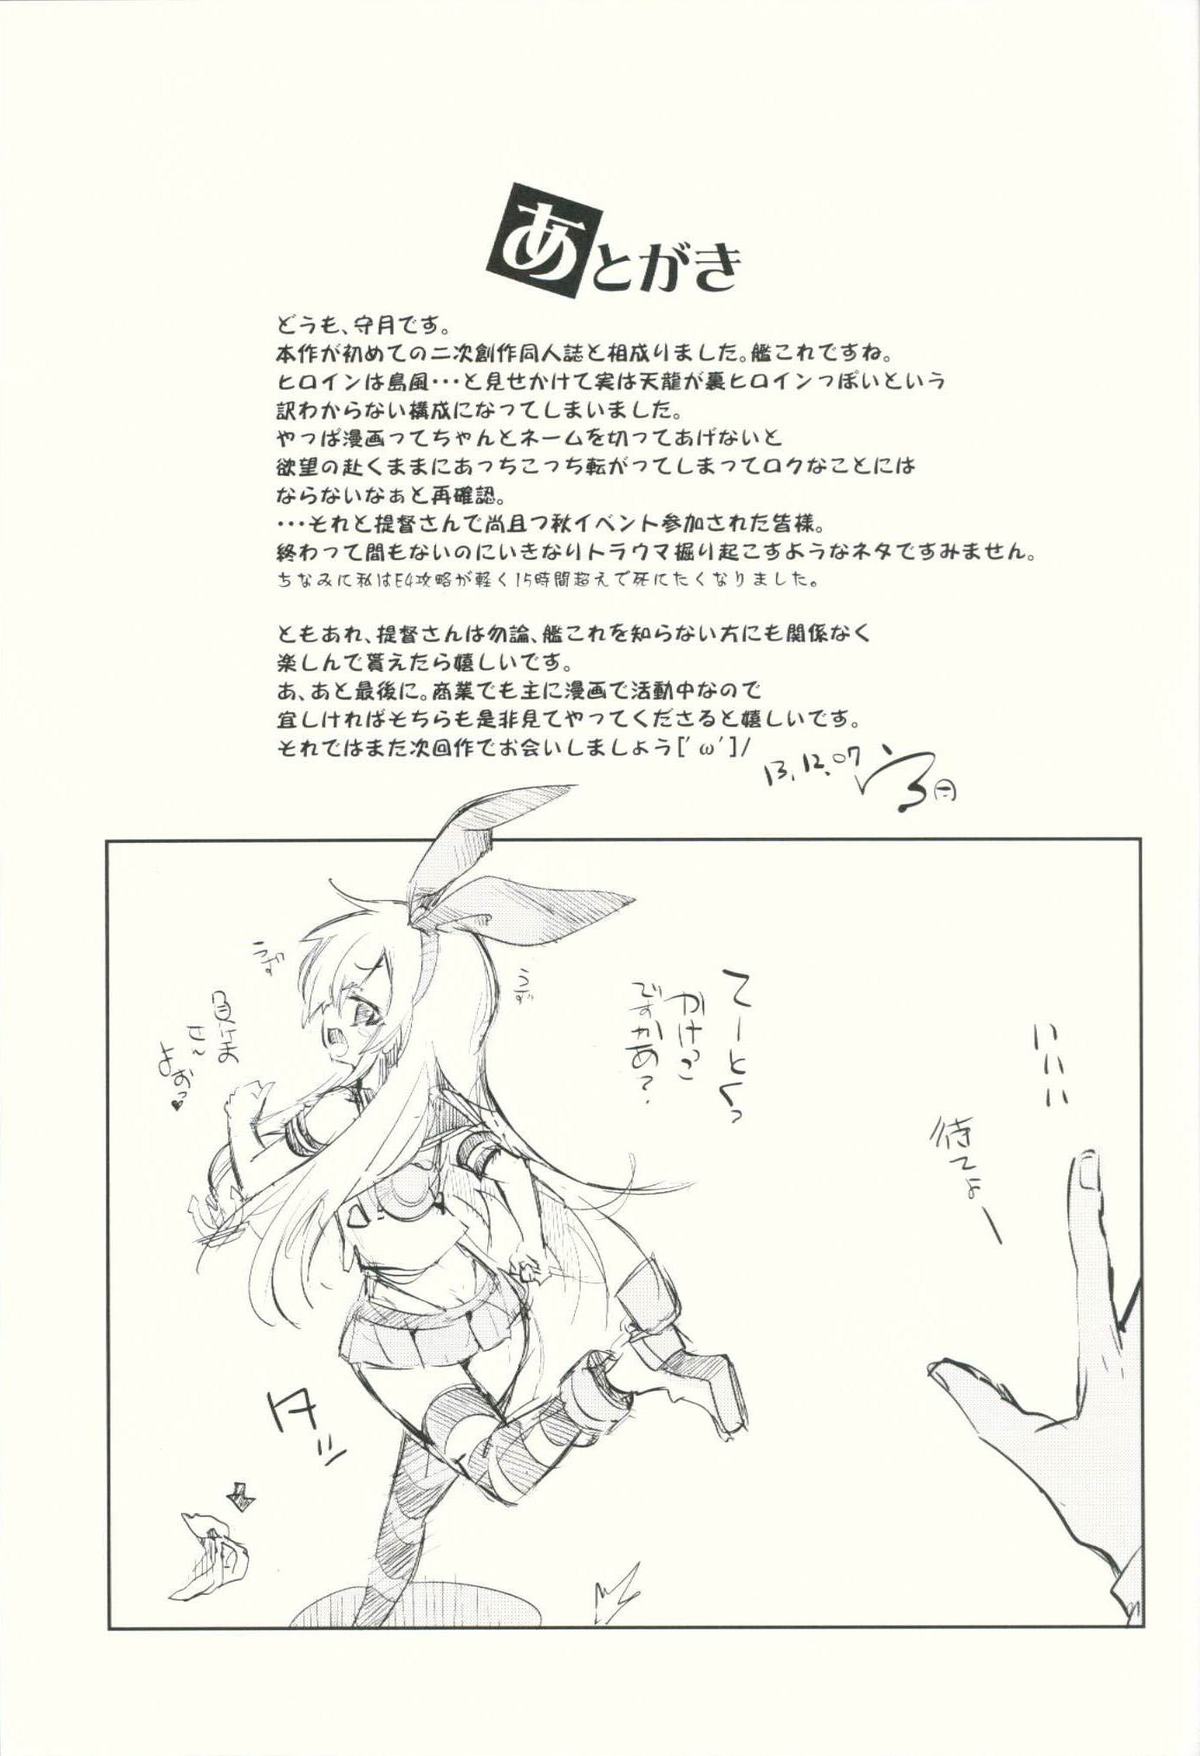 あとがき
どうも、守月です。
本作が初めての二次創作同人誌と相成りました。艦これですね。
ヒロインは島風･･･と見せかけて実は天龍が裏ヒロインっぽいという
訳わからない構成になってしまいました。
やっぱ漫画ってちゃんとネームを切ってあげないと
欲望の赴くままにあっちこっち転がってしまってロクなことには
ならないなぁと再確認。
･･･それと提督さんで尚且つ秋イベント参加された皆様。
終わって間もないのにいきなりトラウマ掘り起こすようなネタですみません。
ちなみに私はE4攻略が軽く15時間超えで死にたくなりました。
ともあれ、提督さんは勿論、艦これを知らない方にも関係なく
楽しんで貰えたら嬉しいです。
あ、あと最後に。商業でも主に漫画で活動中なので
宜しければそちらも是非見てやってくださると嬉しいです。
それではまた次回作でお会いしましょう['ω']/
13.12.07
いいい
待てよー
てーとくっ
かけっこ
ですかあ?
うず
うず
負けま
せん
よおっ♥
タッ